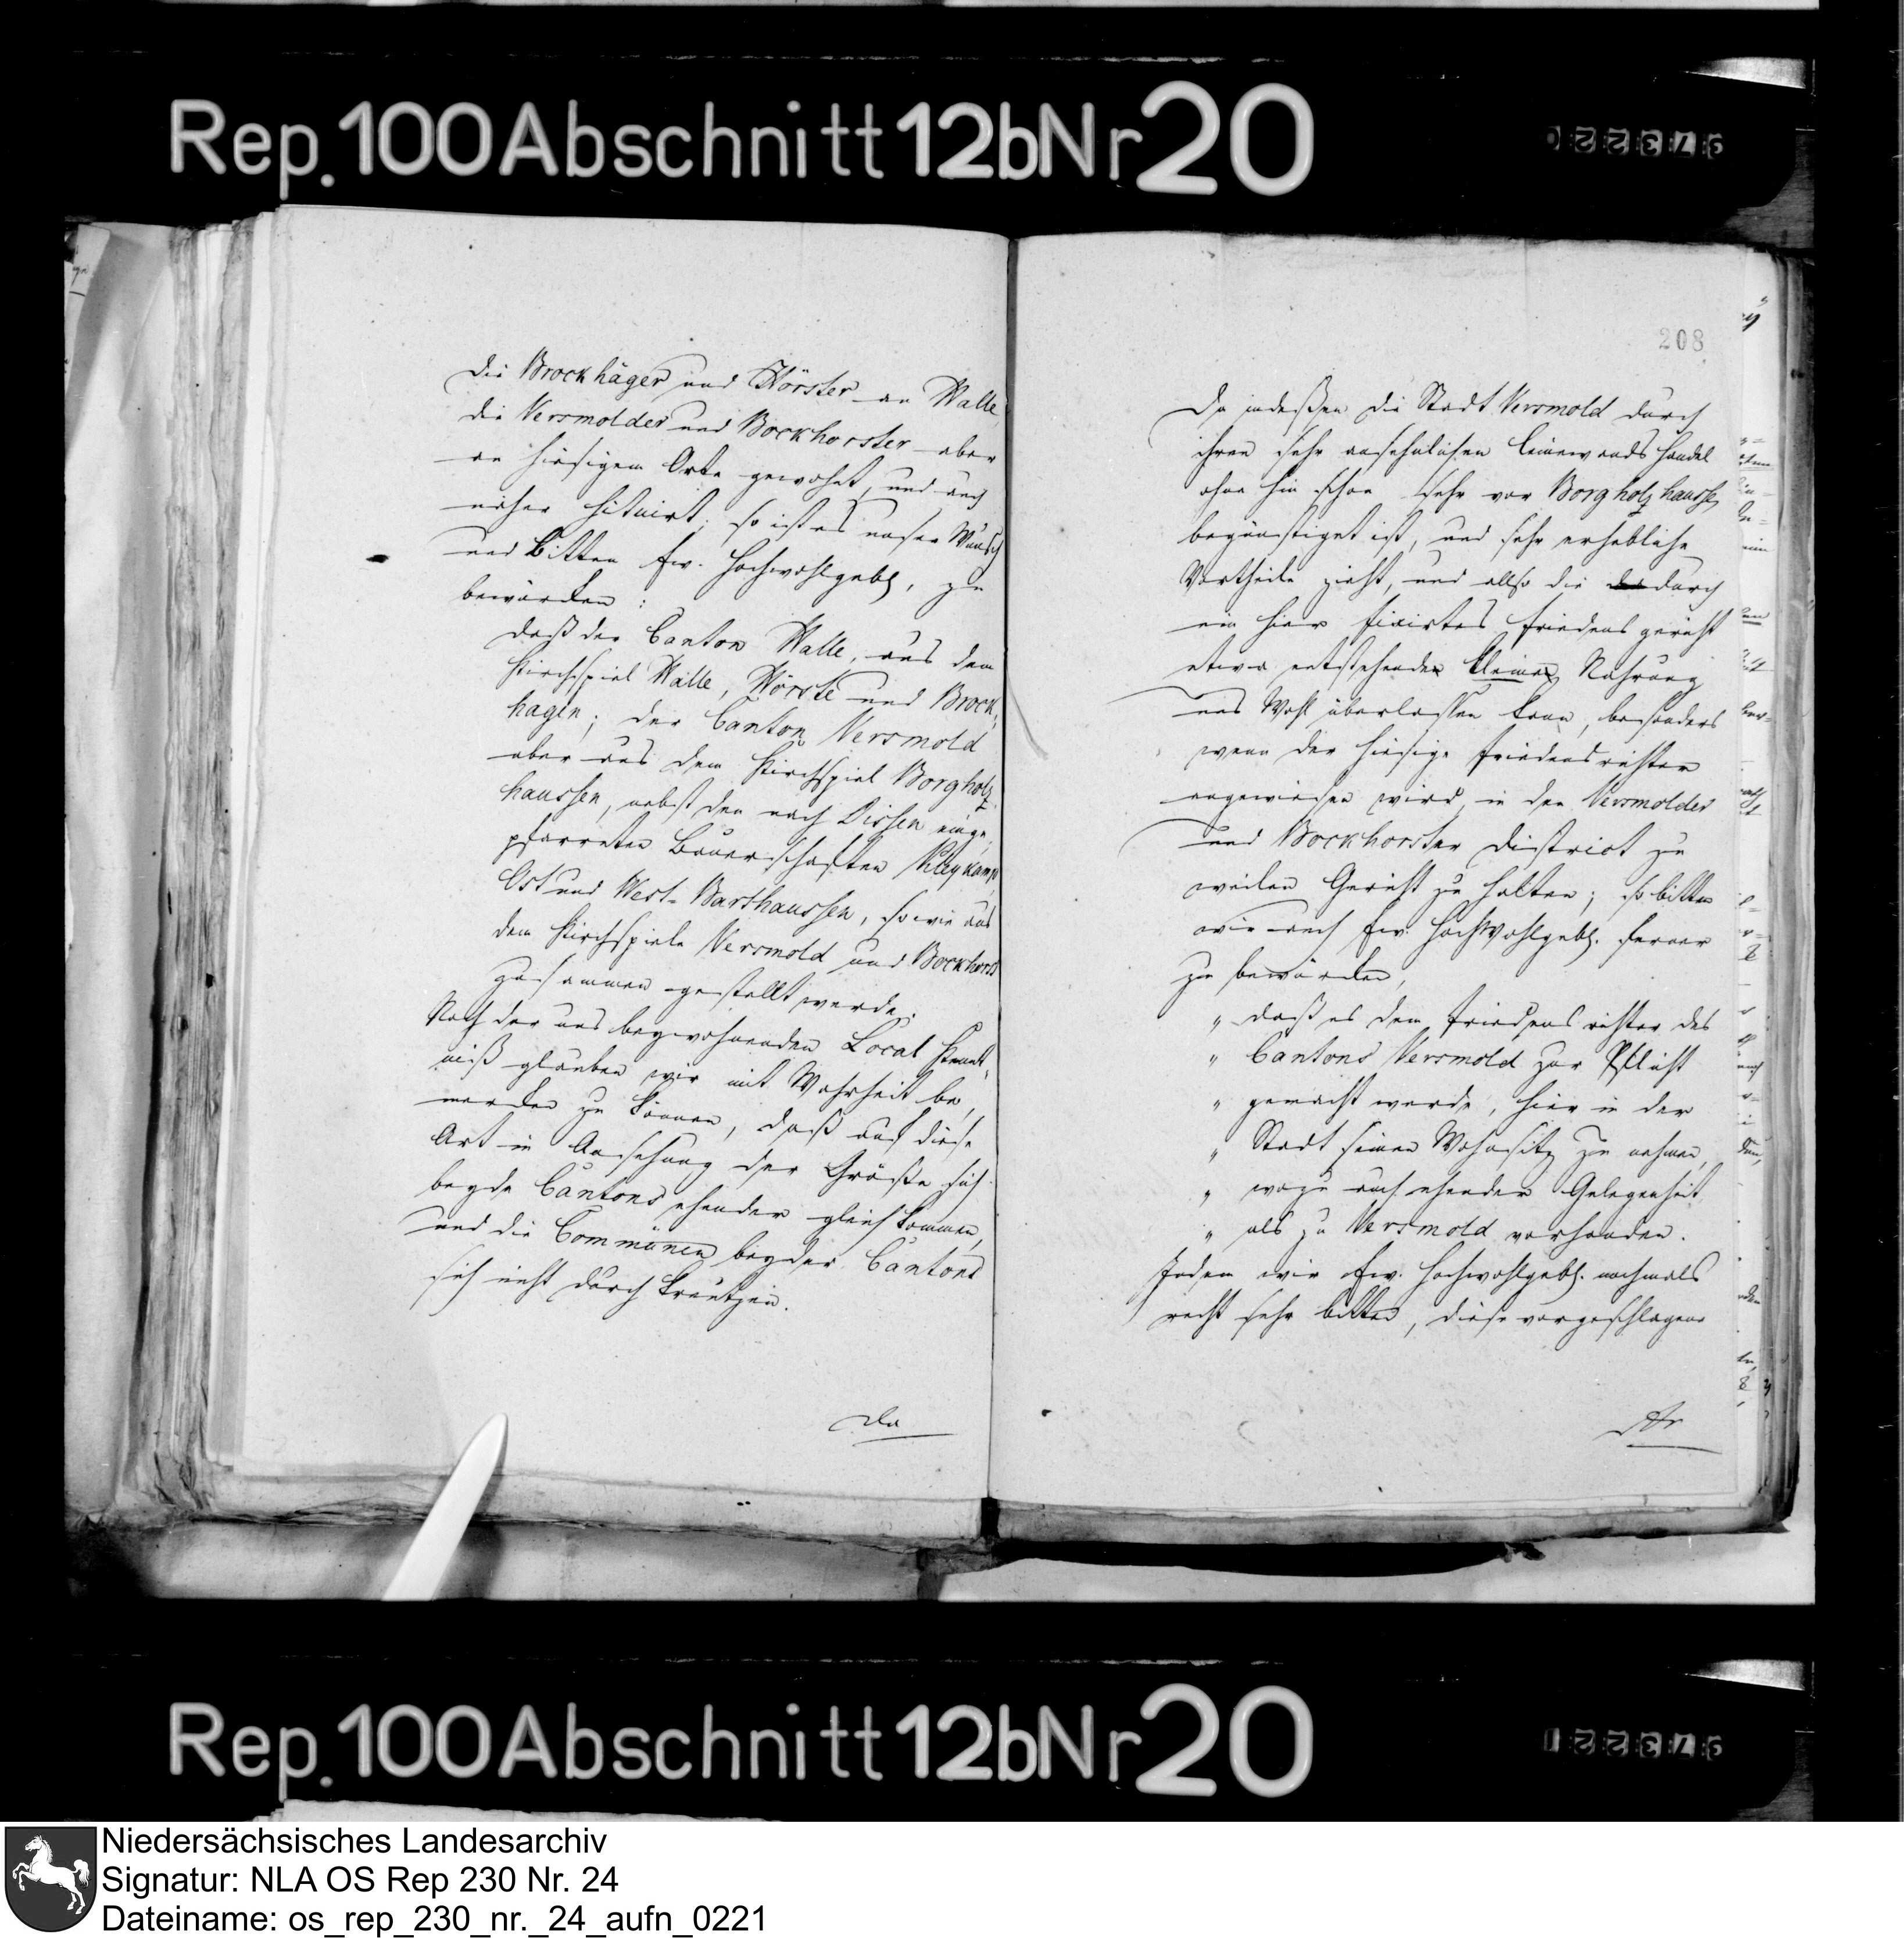 Rep. 100 Abschnitt 12b Nr 20
die Brockhäger und Hörster an Halle,
die Versmolder und Bockhorster aber
an hiesigem Orte gewohnt, und auch
näher situirt; so ist es unser Wunsch
und Bitten Ew. Hochwohlgeb., zu
bewürken:
daß der Canton Halle, aus dem
Kirchspiel Halle, Hörste und Brock,
hagen; der Canton Versmold
aber aus dem Kirchspiel Borgholz
haussen, nebst den nach Dissen einge,
pfarreten Bauerschaften Kleykamp
Ost und West-Barthaussen, so wie aus
dem Kirchspiele Versmold und Bockhorst
zusammen gestellt werde.
Nach der uns beywohnenden Local Kennt,
niß glauben wir mit Wahrheit be,
merken zu können, daß auf diese
Art in Ansehung der Größe sich
beyde Cantons ehender gleich kommen,
und die Communen beyder Cantons
sich nicht durch kreutzen.
Da
208
Da indeßen die Stadt Versmold durch
ihren sehr ansehnlichen Leinewands Handel
ohne hin schon sehr vor Borgholzhaussen
begünstiget ist, und sehr erhebliche
Vortheile zieht, und allso die dadurch
ein hier fixirtes Friedens gericht
etwa entstehende kleine Nahrung
uns Wohl überlassen kann, besonders
wenn der hiesige Friedensrichter
angewiesen wird, in den Versmolder
und Bockhorster District zu
weilen Gericht zu halten; so bitten
wir auch Ew. Hochwohlgeb. ferner
zu bewürken,
„ daß es dem Friedens richter des
„ Cantons Versmold zur Pflicht
„ gemacht werde, hier in der
„ Stadt seinen Wohnsitz zu nehmen,
„ wozu auch ehender Gelegenheit,
„ als zu Versmold vorhanden.
Indem wir Ew. Hochwohlgeb. nochmals
recht sehr bitten, diese vorgeschlagene
Rep. 100 Abschnitt 12b Nr 20
Niedersächsisches Landesarchiv
Signatur: NLA OS Rep 230 Nr. 24
Dateiname: os_rep_230_nr._24_aufn_0221